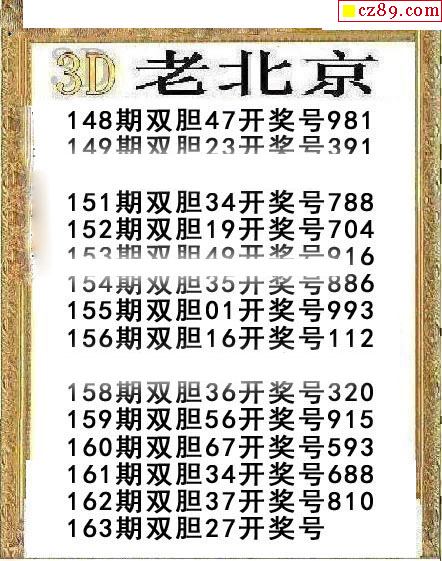 cz89.com
3D 老北京
148期双胆47开奖号981
149期双胆23开奖号391
151期双胆34开奖号788
152期双胆19开奖号704
153期双胆49开奖号916
154期双胆35开奖号886
155期双胆01开奖号993
156期双胆16开奖号112
158期双胆36开奖号320
159期双胆56开奖号915
160期双胆67开奖号593
161期双胆34开奖号688
162期双胆37开奖号810
163期双胆27开奖号